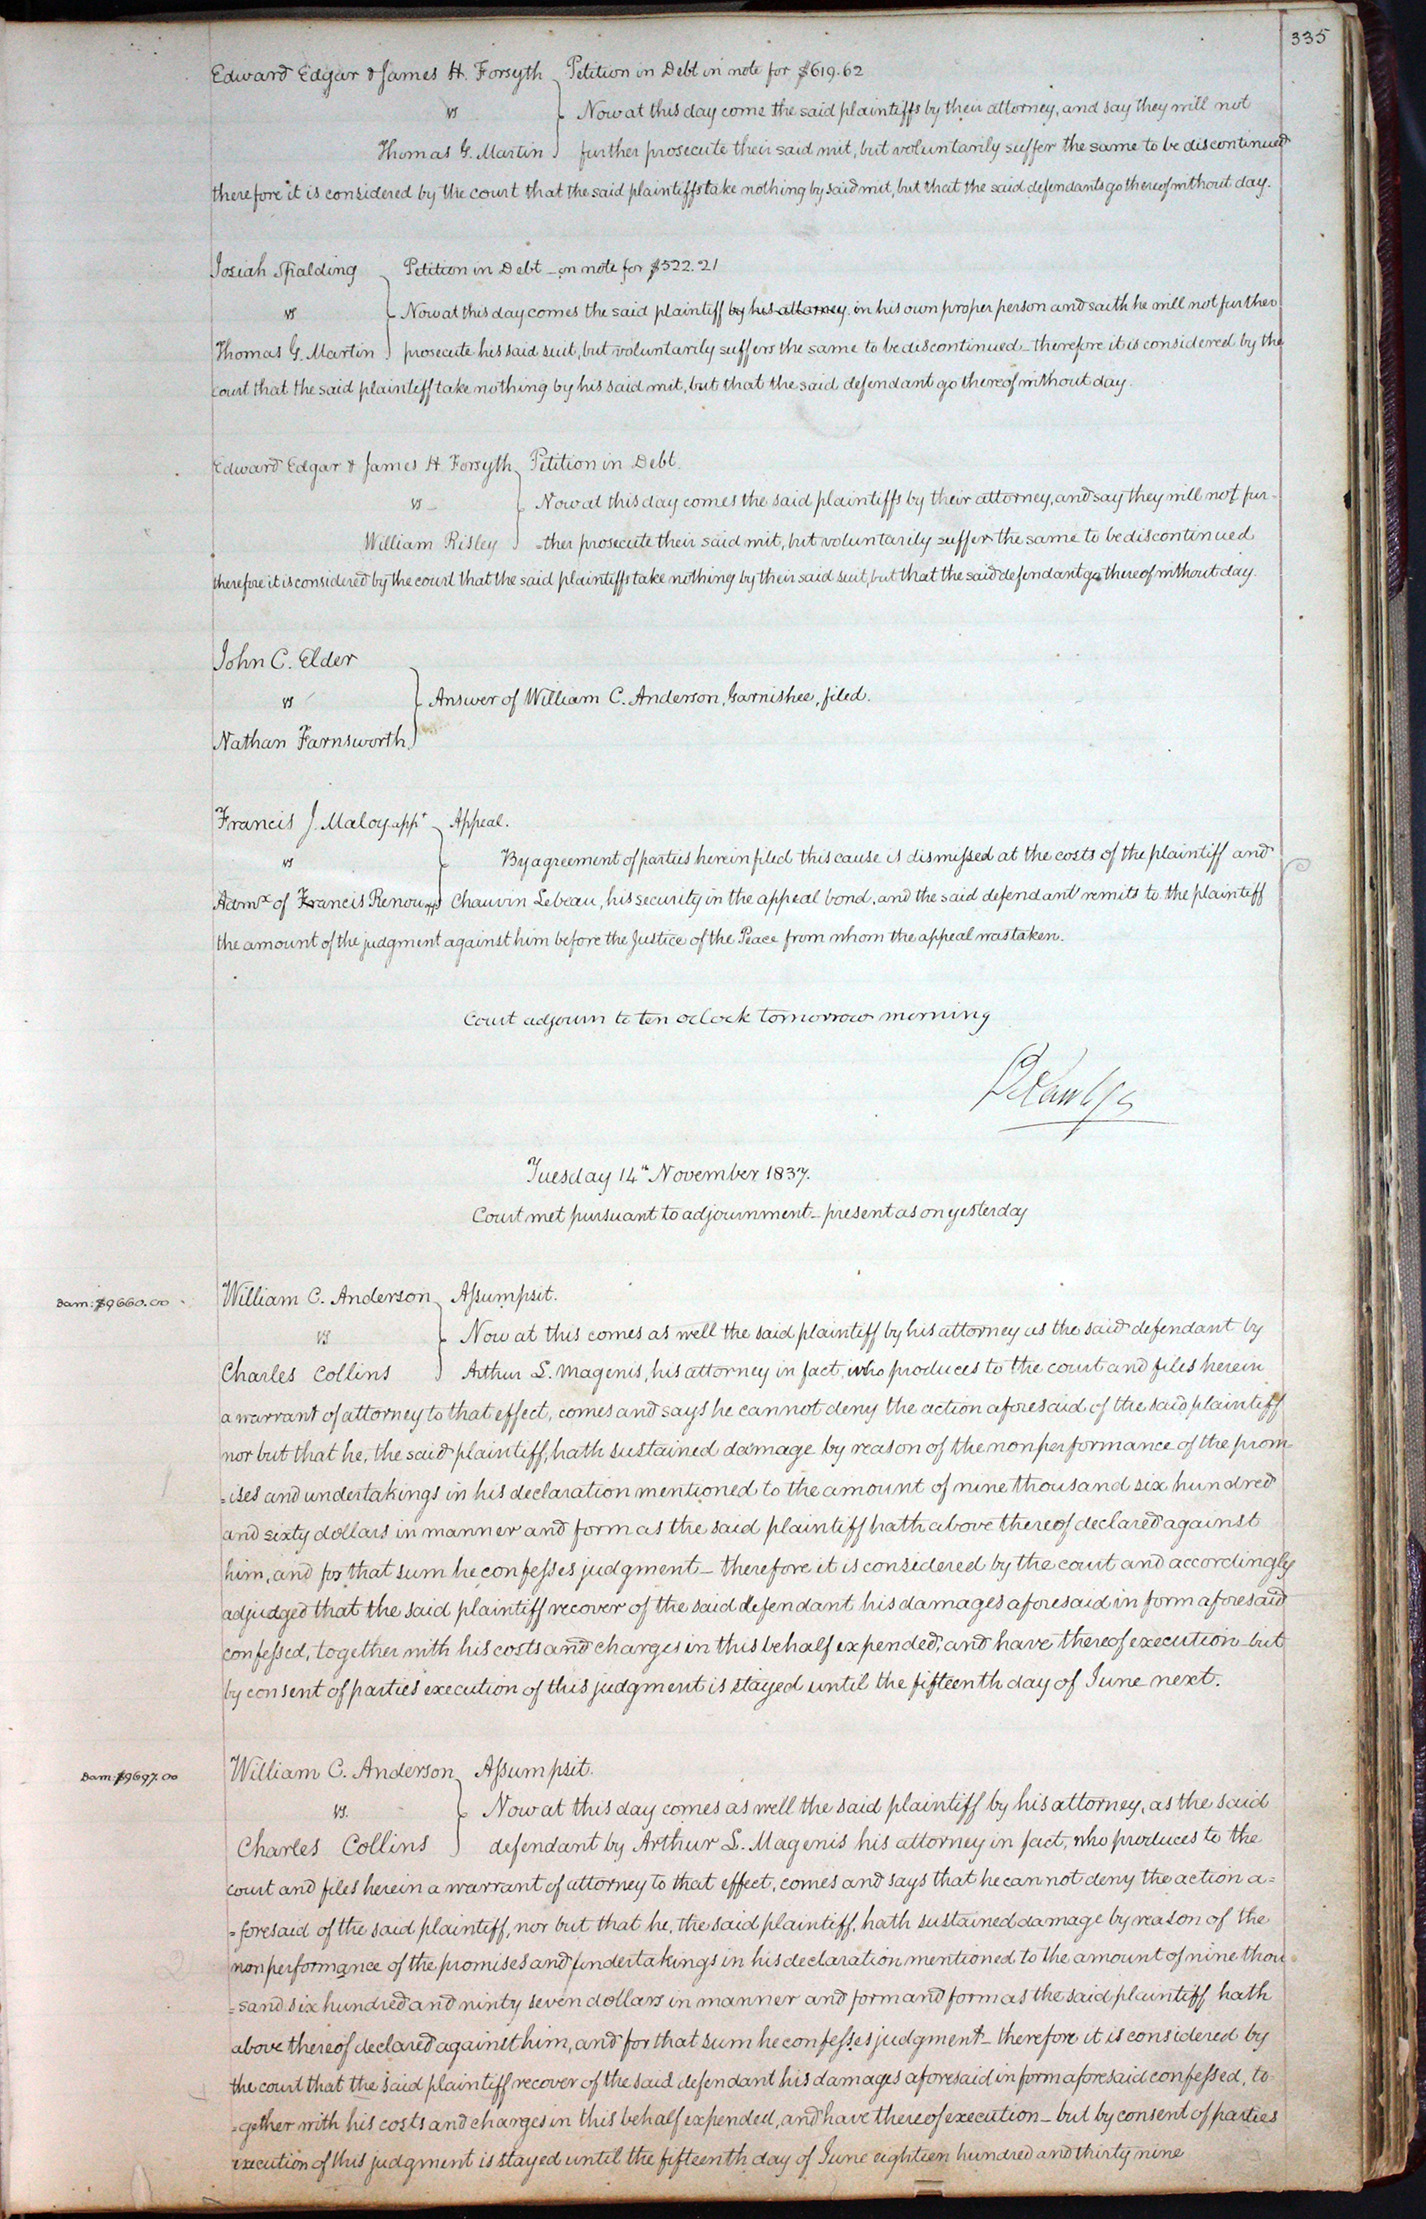 335
Edward Edgar & James H. Forsyth Petition in Debt in note for $619.62
vs Now at this day come the said plaintiffs by their attorney, and say they will not
Thomas G. Martin further prosecute their said writ, but voluntarily suffer the same to be discontinued
therefore it is considered by the court that the said plaintiffs take nothing by said writ, but that the said defendants go thereof without day.
Josiah Spalding Petition in Debt – on note for $522.21
vs Now at this day comes the said plaintiff by his attorney in his own proper person and saith he will not further
Thomas G. Martin prosecute his said suit, but voluntarily suffers the same to be discontinued – therefore it is considered by the
court that the said plaintiff take nothing by his said writ, but that the said defendant go thereof without day.
Edward Edgar & James H. Forsyth Petition in Debt.
vs – Now at this day comes the said plaintiffs by their attorney, and say they will not fur-
William Risley =ther prosecute their said writ, but voluntarily suffer the same to be discontinued
therefore it is considered by the court that the said plaintiffs take nothing by their said suit, but that the said defendant go thereof without day.
John C. Elder
vs Answer of William C. Anderson, Garnishee, filed.
Nathan Farnsworth
Francis J. Maloy appt Appeal.
vs By agreement of parties herein filed this cause is dismissed at the costs of the plaintiff and
Admx of Francis Renou Chauvin Lebeau, his security in the appeal bond, and the said defendant remits to the plaintiff
the amount of the judgment against him before the Justice of the Peace from whom the appeal was taken.
Court adjourn to ten oclock tomorrow morning
Tuesday 14th November 1837.
Court met pursuant to adjournment – present as on yesterday
Dam: $9660.00
William C. Anderson Assumpsit.
vs Now at this comes as well the said plaintiff by his attorney as the said defendant by
Charles Collins Arthur L. Magenis, his attorney in fact, who produces to the court and files herein
a warrant of attorney to that effect, comes and says he cannot deny the action aforesaid of the said plaintiff
nor but that he, the said plaintiff, hath sustained damage by reason of the nonperformance of the prom-
=ises and undertakings in his declaration mentioned to the amount of nine thousand six hundred
and sixty dollars in manner and form as the said plaintiff hath above thereof declared against
him, and for that sum he confesses judgment – therefore it is considered by the court and accordingly
adjudged that the said plaintiff recover of the said defendant his damages aforesaid in form aforesaid
confessed, together with his costs and charges in this behalf expended, and have thereof execution – but
by consent of parties execution of this judgment is stayed until the fifteenth day of June next.
Dam: $9697.00
William C. Anderson Assumpsit.
vs. Now at this day comes as well the said plaintiff by his attorney, as the said
Charles Collins defendant by Arthur L. Magenis his attorney in fact, who produces to the
court and files herein a warrant of attorney to that effect, comes and says that he can not deny the action a=
=foresaid of the said plaintiff, nor but that he, the said plaintiff, hath sustained damage by reason of the
nonperformance of the promises and undertakings in his declaration mentioned to the amount of nine thou=
=sand six hundred and ninty seven dollars in manner and form and form as the said plaintiff hath
above thereof declared against him, and for that sum he confesses judgment – therefore it is considered by
the court that the said plaintiff recover of the said defendant his damages aforesaid in form aforesaid confessed, to-
=gether with his costs and charges in this behalf expended, and have thereof execution – but by consent of parties
execution of this judgment is stayed until the fifteenth day of June eighteen hundred and thirty nine